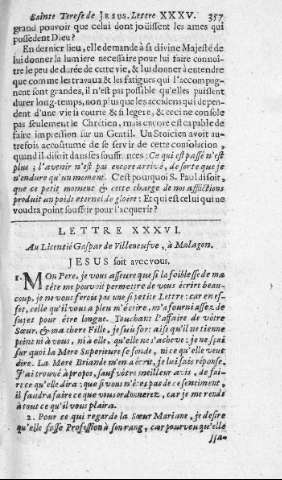 Sainte Terese de JESUS. Lettre XXXV. 357
grand pouvoir que celui dont joüissent les ames qui
possedent Dieu?
En dernier lieu, elle demande à sa divine Majesté de
lui donner la lumiere necessaire pour lui faire connoî-
tre le peu de durée de cette vie, & lui donner à entendre
que comme les travaux & les fatigues qui l'accompag-
nent sont grandes, il n'est pas possible qu'elles puissent
durer long-temps, non plus que les accidens qui dépen-
dent d'une vie si courte & si legere, & ceci ne console
pas seulement le Chrétien, mais encore est capable de
faire impression sur un Gentil. Un Stoicien avoit au-
trefois accoûtumé de se servir de cette consolation,
quand il disoit dans ses souffrances: Ce qui est passé n'est
plus; l'avenir n'est pas encore arrivé, de sorte que je
n'endure qu'un moment. C'est pourquoi S. Paul disoit,
que ce petit moment & cette charge de nos afflictions
produit un poids eternel de gloire: Et qui est celui qui ne
voudra point souffrir pour l'acquerir?
LETTRE XXXVI.
Au Licentié Gaspar de Villeneufve, à Malagon.
JESUS soit avec vous.
1. MOn Pere, je vous asseure que si la foiblesse de ma
tête me pouvoit permettre de vous écrire beau-
coup, je ne vous ferois pas une si petite Lettre: car en ef-
fet, celle qu'il vous a pleu m'écrire, m'a fourni assez de
sujet pour être longue. Touchant l'affaire de vôtre
Sœur, & ma chere Fille, je suis fort aise qu'il ne tienne
peint ni à vous, ni à elle, qu'elle ne s'acheve: je ne sçai
sur quoi la Mere Superieure se fonde, ni ce qu'elle veut
dire. La Mere Briande m'en a écrit, je lui fais réponse.
J'ai trouvé à propos, sauf vôtre meilleur avis, de fai-
re ce qu'elle dira: que si vous n'êtes pas de ce sentiment,
il faudra faire ce que vous ordonnerez, car je me rends
à tout ce qu'il vous plaira.
2. Pour ce qui regarde la Sœur Mariane, je desire
qu'elle fasse Profession à son rang, car pourveu qu'elle
ssa-